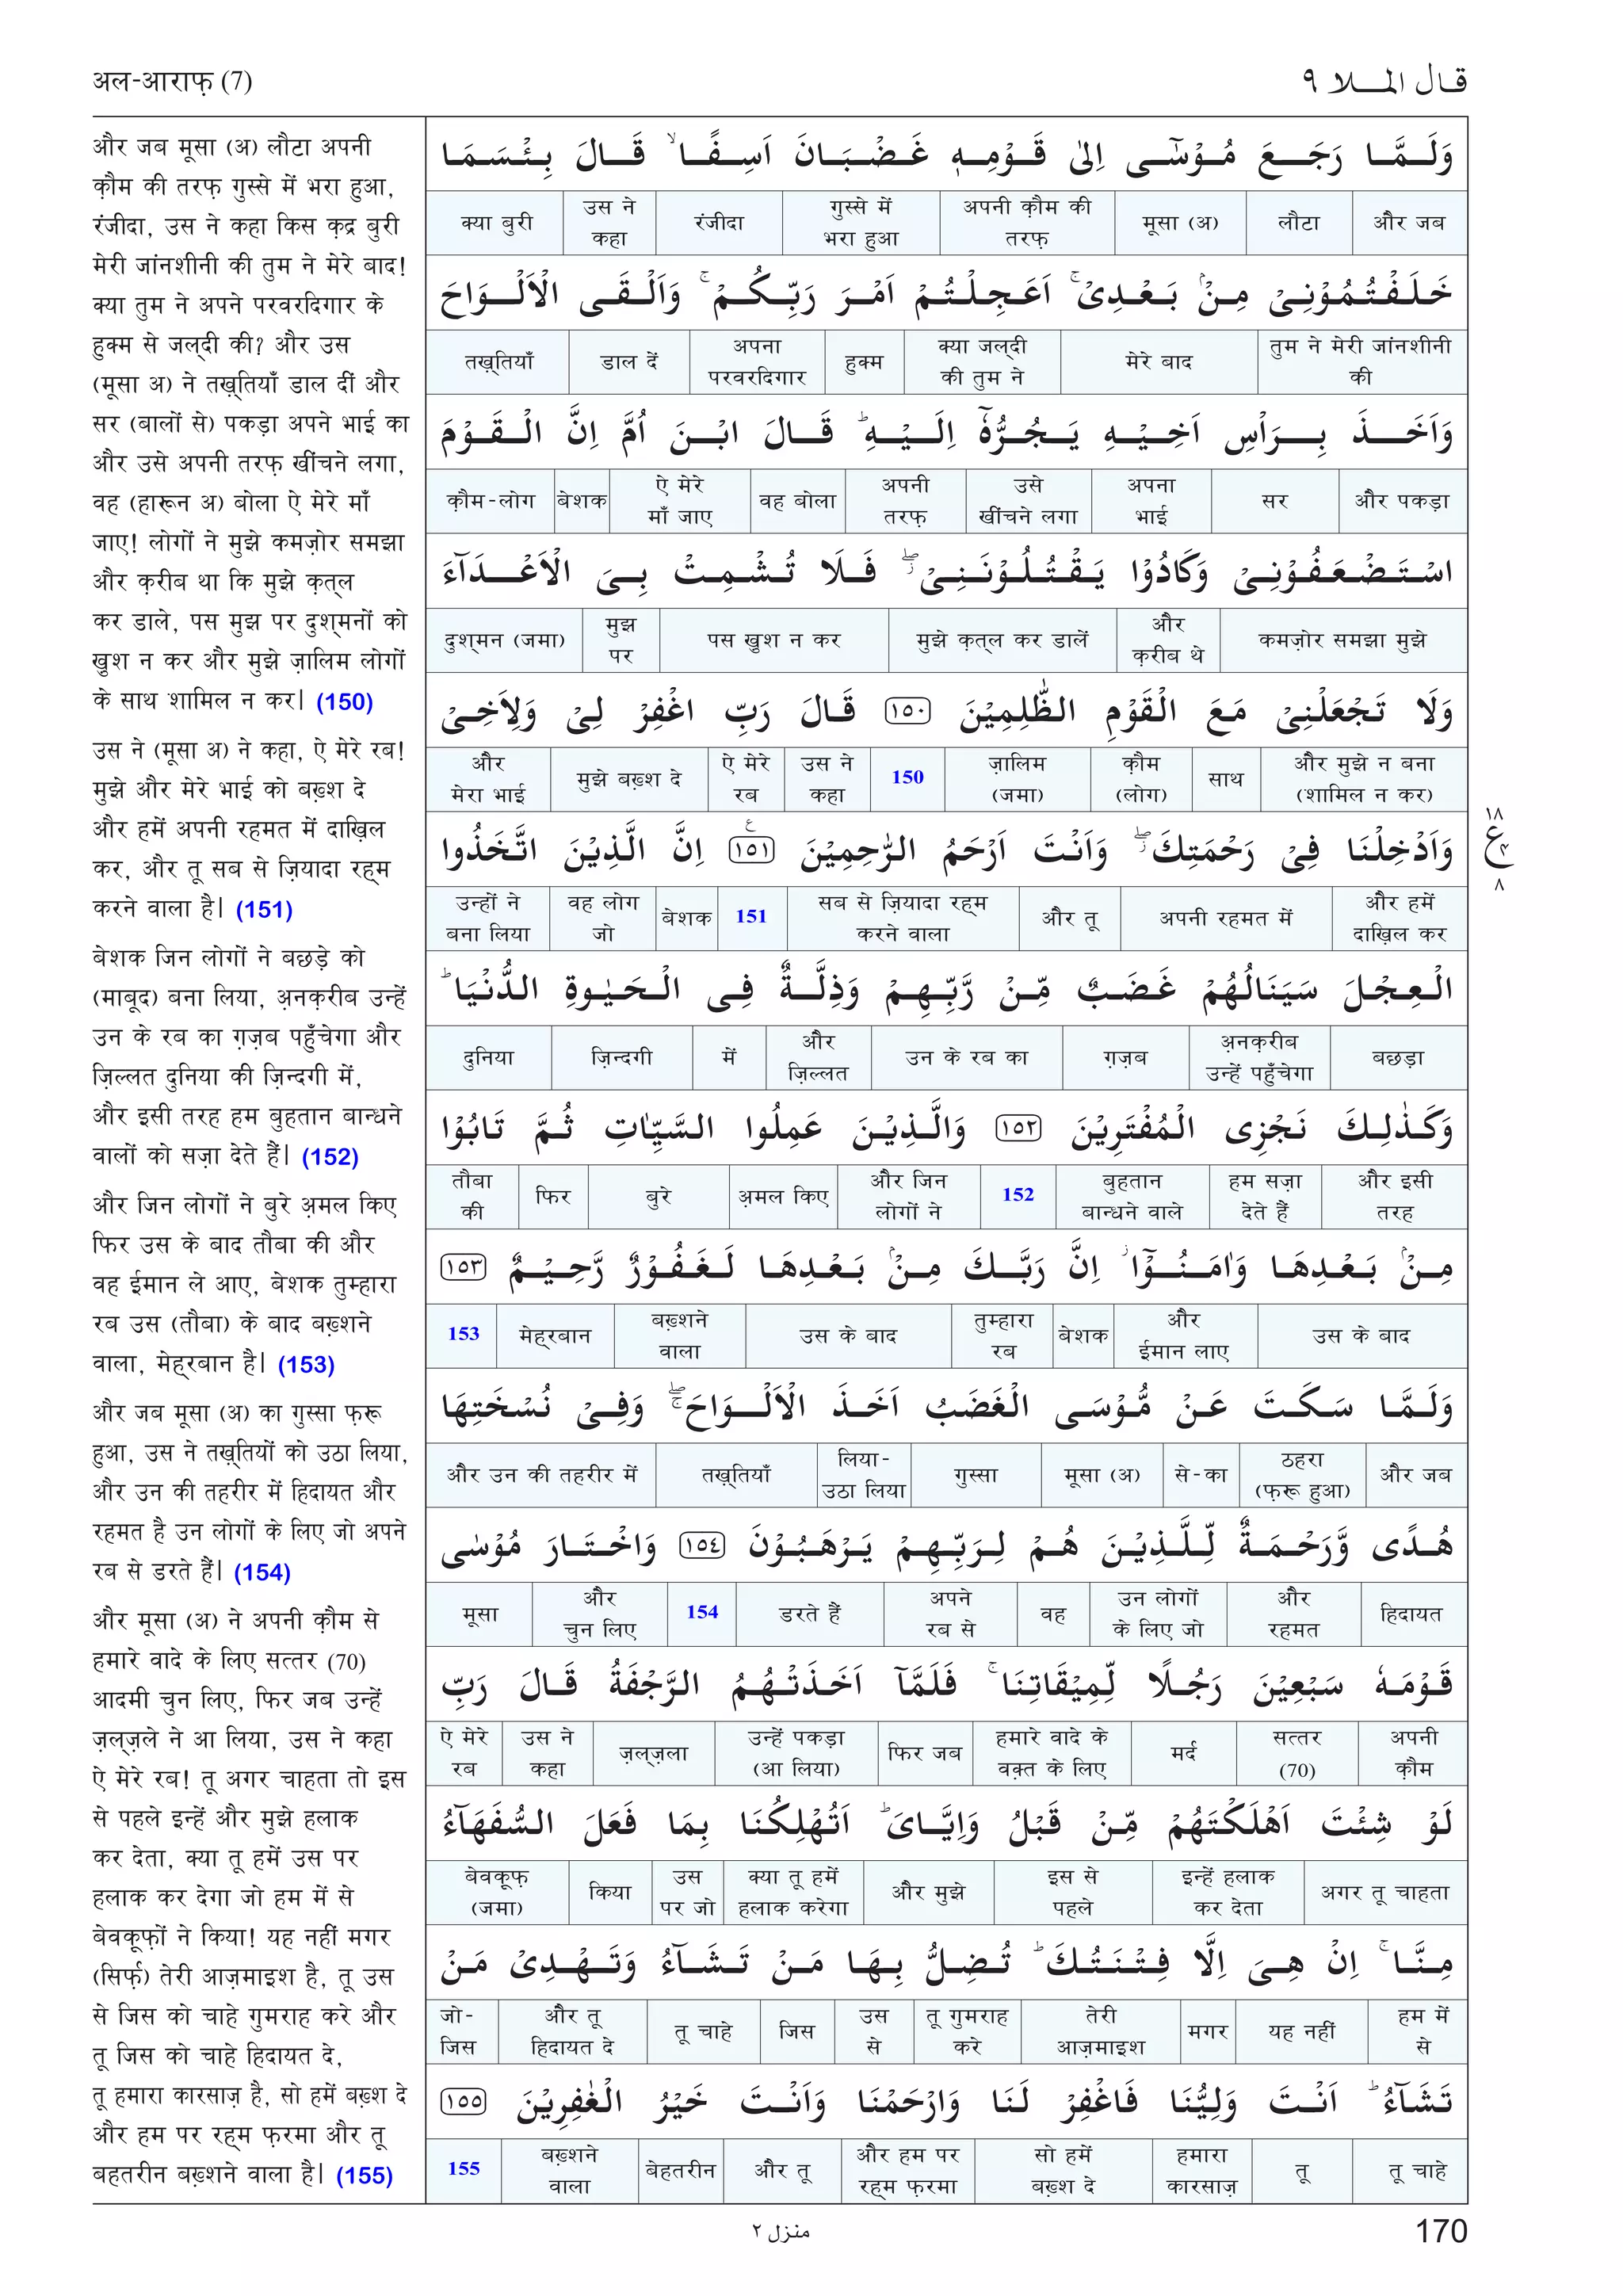 अल-आराफ़ (7)
قال الملا ٩
और जब मूसा (अ) लौटा अपनी
क़ौम की तरफ़ ग़ुस्से में भरा हुआ,
रंजीदा, उस ने कहा किस क़द्र बुरी
मेरी जांनशीनी की तुम ने मेरे बाद!
क्या तुम ने अपने परवरदिगार के
हुक्म से जल्दी की? और उस
(मूसा अ) ने तख़्तियाँ डाल दीं और
सर (बालों से) पकड़ा अपने भाई का
और उसे अपनी तरफ़ खींचने लगा,
वह (हारून अ) बोला ऐ मेरे माँ
जाए! लोगों ने मुझे कमज़ोर समझा
और क़रीब था कि मुझे क़त्ल
कर डाले, पस मुझ पर दुश्मनों को
ख़ुश न कर और मुझे ज़ालिम लोगों
के साथ शामिल न कर। (150)
उस ने (मूसा अ) ने कहा, ऐ मेरे रब!
मुझे और मेरे भाई को बख़्श दे
और हमें अपनी रहमत में दाख़िल
कर, और तू सब से ज़ियादा रह्म
करने वाला है। (151)
बेशक जिन लोगों ने बछड़े को
(माबूद) बना लिया, अ़नक़रीब उन्हें
उन के रब का ग़ज़ब पहुँचेगा और
ज़िल्लत दुनिया की ज़िन्दगी में,
और इसी तरह हम बुहतान बान्धने
वालों को सज़ा देते हैं। (152)
और जिन लोगों ने बुरे अ़मल किए
फिर उस के बाद तौबा की और
वह ईमान ले आए, बेशक तुम्हारा
रब उस (तौबा) के बाद बख़्शने
वाला, मेह्रबान है। (153)
और जब मूसा (अ) का ग़ुस्सा फ़रू
हुआ, उस ने तख़्तियों को उठा लिया,
और उन की तहरीर में हिदायत और
रहमत है उन लोगों के लिए जो अपने
रब से डरते हैं। (154)
और मूसा (अ) ने अपनी क़ौम से
हमारे वादे के लिए सत्तर (70)
आदमी चुन लिए, फिर जब उन्हें
ज़ल्ज़ले ने आ लिया, उस ने कहा
ऐ मेरे रब! तू अगर चाहता तो इस
से पहले इन्हें और मुझे हलाक
कर देता, क्या तू हमें उस पर
हलाक कर देगा जो हम में से
बेवक़ूफ़ों ने किया! यह नहीं मगर
(सिर्फ़) तेरी आज़माइश है, तू उस
से जिस को चाहे गुमराह करे और
तू जिस को चाहे हिदायत दे,
तू हमारा कारसाज़ है, सो हमें बख़्श दे
और हम पर रह्म फ़रमा और तू
बहतरीन बख़्शने वाला है। (155)
وَلَمَّا رَجَعَ مُوْسٰٓى اِلٰى قَوْمِهٖ غَضْبَانَ اَسِفًا ۙ قَالَ بِئْسَمَا
और जब | लौटा | मूसा (अ) | अपनी क़ौम की तरफ़ | ग़ुस्से में भरा हुआ | रंजीदा | उस ने कहा | क्या बुरी
خَلَفْتُمُوْنِىْ مِنْۢ بَعْدِىْ ۚ اَعَجِلْتُمْ اَمْرَ رَبِّكُمْ ۚ وَاَلْقَى الْاَلْوَاحَ
तुम ने मेरी जांनशीनी की | मेरे बाद | क्या जल्दी की तुम ने | हुक्म | अपना परवरदिगार | डाल दें | तख़्तियाँ
وَاَخَذَ بِرَاْسِ اَخِيْهِ يَجُرُّهٗٓ اِلَيْهِ ؕ قَالَ ابْنَ اُمَّ اِنَّ الْقَوْمَ
और पकड़ा | सर | अपना भाई | उसे खींचने लगा | अपनी तरफ़ | वह बोला | ऐ मेरे माँ जाए | बेशक | क़ौम-लोग
اسْتَضْعَفُوْنِىْ وَكَادُوْا يَقْتُلُوْنَنِىْ ۖ فَلَا تُشْمِتْ بِىَ الْاَعْدَآءَ
कमज़ोर समझा मुझे | और क़रीब थे | मुझे क़त्ल कर डालें | पस ख़ुश न कर | मुझ पर | दुश्मन (जमा)
وَلَا تَجْعَلْنِىْ مَعَ الْقَوْمِ الظّٰلِمِيْنَ ١٥٠ قَالَ رَبِّ اغْفِرْ لِىْ وَلِاَخِىْ
और मुझे न बना (शामिल न कर) | साथ | क़ौम (लोग) | ज़ालिम (जमा) | 150 | उस ने कहा | ऐ मेरे रब | मुझे बख़्श दे | और मेरा भाई
وَاَدْخِلْنَا فِىْ رَحْمَتِكَ ۖ وَاَنْتَ اَرْحَمُ الرّٰحِمِيْنَ ١٥١ اِنَّ الَّذِيْنَ اتَّخَذُوا
١٨ ع ٤ ٨
और हमें दाख़िल कर | अपनी रहमत में | और तू | सब से ज़ियादा रह्म करने वाला | 151 | बेशक | वह लोग जो | उन्हों ने बना लिया
الْعِجْلَ سَيَنَالُهُمْ غَضَبٌ مِّنْ رَّبِّهِمْ وَذِلَّةٌ فِى الْحَيٰوةِ الدُّنْيَا ؕ
बछड़ा | अ़नक़रीब उन्हें पहुँचेगा | ग़ज़ब | उन के रब का | और ज़िल्लत | में | ज़िन्दगी | दुनिया
وَكَذٰلِكَ نَجْزِى الْمُفْتَرِيْنَ ١٥٢ وَالَّذِيْنَ عَمِلُوا السَّيِّاٰتِ ثُمَّ تَابُوْا
और इसी तरह | हम सज़ा देते हैं | बुहतान बान्धने वाले | 152 | और जिन लोगों ने | अ़मल किए | बुरे | फिर | तौबा की
مِنْۢ بَعْدِهَا وَاٰمَنُوْٓا ۡ اِنَّ رَبَّكَ مِنْۢ بَعْدِهَا لَغَفُوْرٌ رَّحِيْمٌ ١٥٣
उस के बाद | और ईमान लाए | बेशक | तुम्हारा रब | उस के बाद | बख़्शने वाला | मेह्रबान | 153
وَلَمَّا سَكَتَ عَنْ مُّوْسَى الْغَضَبُ اَخَذَ الْاَلْوَاحَ ۖ وَفِىْ نُسْخَتِهَا
और जब | ठहरा (फ़रू हुआ) | से-का | मूसा (अ) | ग़ुस्सा | लिया-उठा लिया | तख़्तियाँ | और उन की तहरीर में
هُدًى وَّرَحْمَةٌ لِّلَّذِيْنَ هُمْ لِرَبِّهِمْ يَرْهَبُوْنَ ١٥٤ وَاخْتَارَ مُوْسٰى
हिदायत | और रहमत | उन लोगों के लिए जो | वह | अपने रब से | डरते हैं | 154 | और चुन लिए | मूसा
قَوْمَهٗ سَبْعِيْنَ رَجُلًا لِّمِيْقَاتِنَا ۚ فَلَمَّآ اَخَذَتْهُمُ الرَّجْفَةُ قَالَ رَبِّ
अपनी क़ौम | सत्तर (70) | मर्द | हमारे वादे के वक़्त के लिए | फिर जब | उन्हें पकड़ा (आ लिया) | ज़ल्ज़ला | उस ने कहा | ऐ मेरे रब
لَوْ شِئْتَ اَهْلَكْتَهُمْ مِّنْ قَبْلُ وَاِيَّاىَ ؕ اَتُهْلِكُنَا بِمَا فَعَلَ السُّفَهَآءُ
अगर तू चाहता | इन्हें हलाक कर देता | इस से पहले | और मुझे | क्या तू हमें हलाक करेगा | उस पर जो | किया | बेवकूफ़ (जमा)
مِنَّا ۚ اِنْ هِىَ اِلَّا فِتْنَتُكَ ؕ تُضِلُّ بِهَا مَنْ تَشَآءُ وَتَهْدِىْ مَنْ
हम में से | यह नहीं | मगर | तेरी आज़माइश | तू गुमराह करे | उस से | जिस | तू चाहे | और तू हिदायत दे | जो-जिस
تَشَآءُ ؕ اَنْتَ وَلِيُّنَا فَاغْفِرْ لَنَا وَارْحَمْنَا وَاَنْتَ خَيْرُ الْغٰفِرِيْنَ ١٥٥
तू चाहे | तू | हमारा कारसाज़ | सो हमें बख़्श दे | और हम पर रह्म फ़रमा | और तू | बेहतरीन | बख़्शने वाला | 155
منزل ٢
170